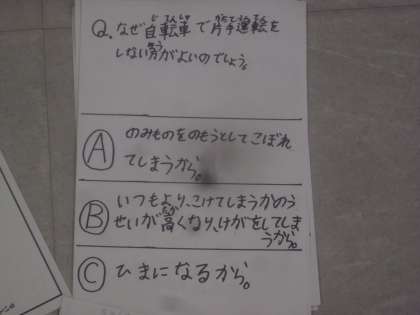 Q、なぜ自転車で片手運転を
しない方がよいのでしょう。
A のみものをのもうとしてこぼれ
てしまうから。
B いつもより、こけてしまうかのう
せいが高くなり、けがをしてしま
うから。
C ひまになるから。